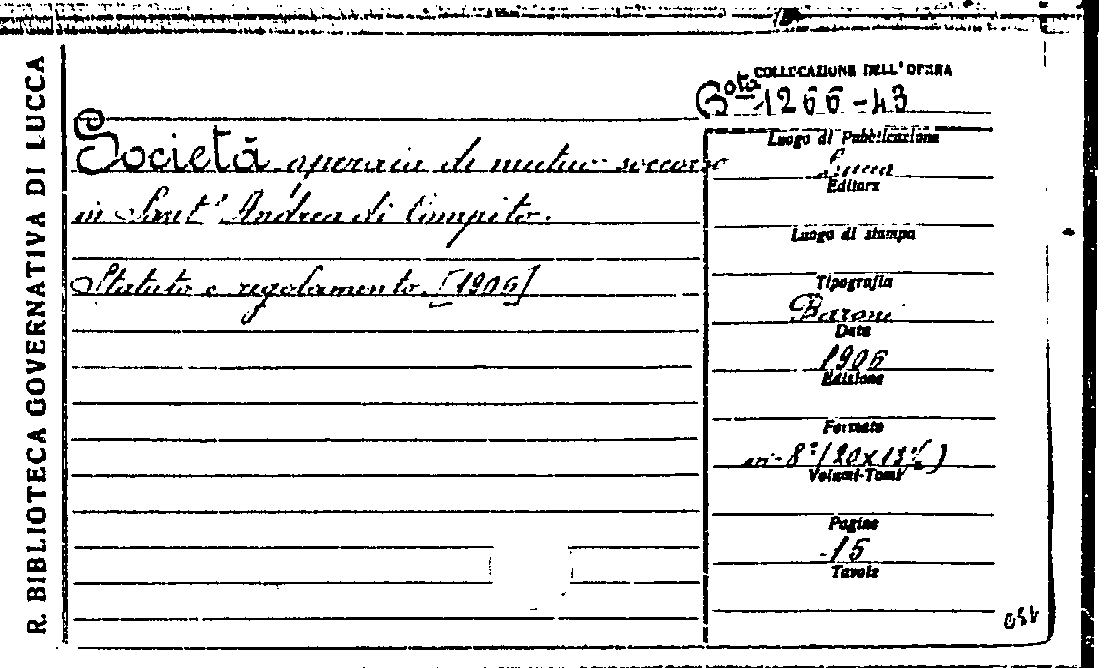 R. BIBLIOTECA GOVERNATIVA DI LUCCA
COLLOCAZIONE DELL'OPERA
Bª 1266-43
Società operaia di mutuo soccorso
in Sant' Andrea di Compito.
Statuto e regolamento. [1906]
Luogo di Pubblicazione
Lucca
Editore
Luogo di stampa
Tipografia
Baroni
Data
1906
Edizione
Formato
in-8º (20x13½)
Volumi-Tomi
Pagine
15
Tavole